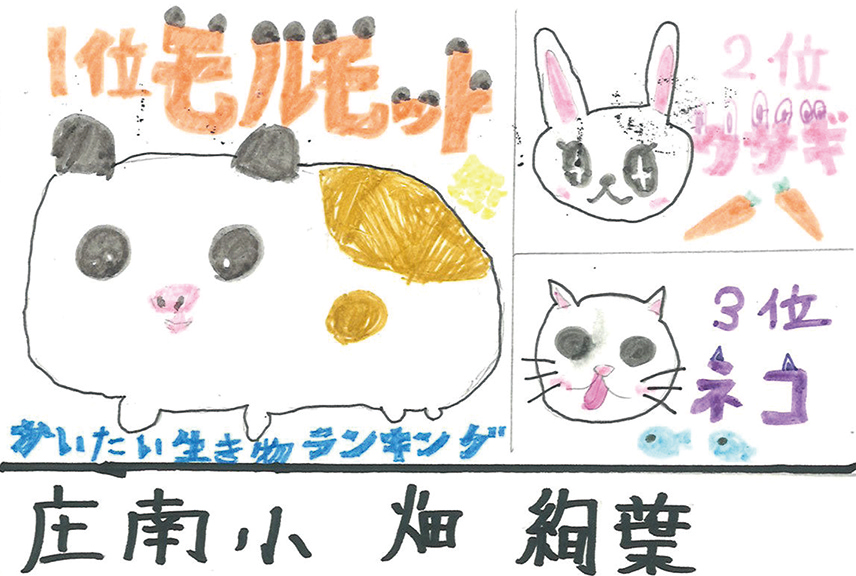 1位モルモット
2位
ウサギ
3位
ネコ
かいたい生き物ランキング
庄南小 畑 絢葉